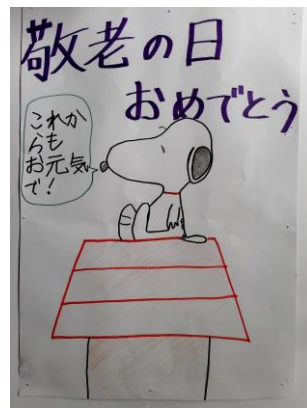 敬老の日
おめでとう
これか
らも
お元気
で！